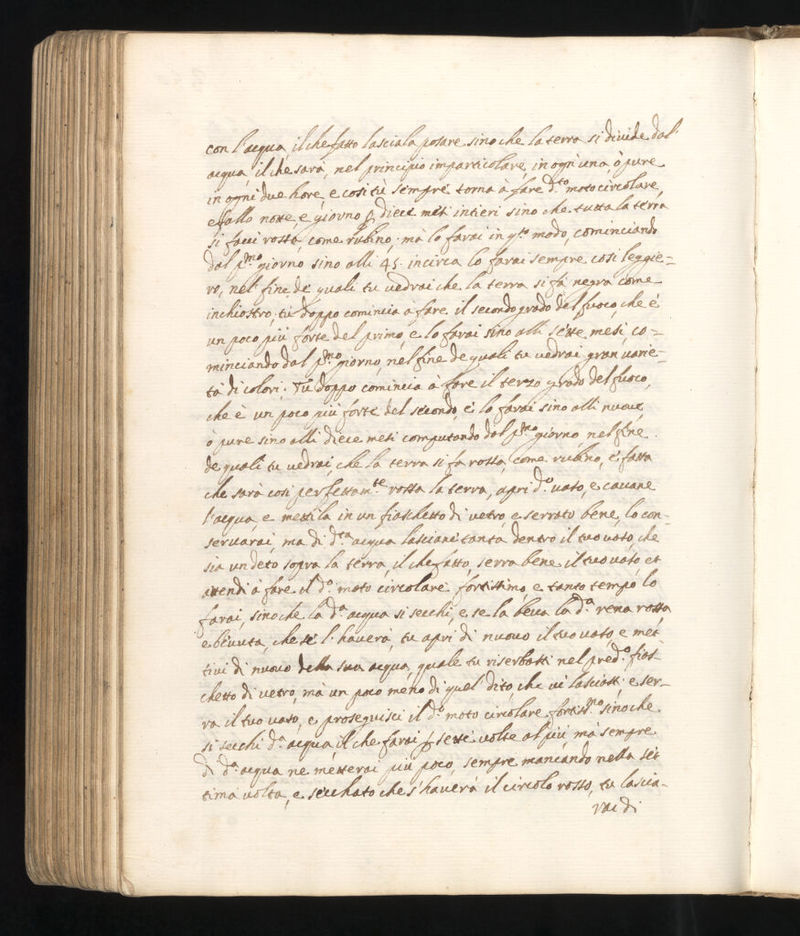 con l'acqua il che fatto lasciala posare sino che la terra si divide dal'
acqua, il che sarà, nel principio imparticolare, in ogni una, ò pure
in ogni due hore, e così tu sempre torna à fare d.to moto circolare,
e fallo notte, e giorno p diece mesi intieri sino che tutta la terra
si facci rossa, come rubino, mà lo farai in q.to modo, cominciando
dal p.mo giorno sino alli 45. incirca lo farai sempre così leggie=
ro, nel fine de quali tu vedrai che la terra si fà negra come
inchiostro; tu doppo comincia à fare il secondo grado del fuoco, che è
un poco più forte del primo, e lo farai sino alli sette mesi, co=
minciando dal p.mo giorno, nel fine de quali tu vedrai gran varie=
tà di colori. Tu doppo comincia à fare il terzo grado del fuoco,
che è un poco più forte del secondo, e lo farai sino alli nuove,
ò pure sino alli diece mesi computando dal p.mo giorno, nel fine
de quali tu vedrai, che la terra si fà rossa come rubino, e fatta
che sarà così perfettam.te rossa la terra, apri d.o vaso, e cavane
l'acqua, e mettila in un fiaschetto di vetro e serrato bene, lo con=
servarai, ma di d.ta acqua lasciani tanta dentro il tuo vaso, che
sia un deto sopra la terra, il che fatto, serra bene il tuo vaso, et
attendi à fare il d.o moto circolare fortissimo, e tanto tempo lo
farai, sinoche la d.a acqua si secchi, e se la beva la d.a rena rossa,
e bevuta, che se l'haverà, tu apri di nuovo il tuo vaso e met=
tivi di nuovo della sua acqua, quale tu riserbasti nel pred.o fias=
chetto di vetro, mà un poco meno di quel dito che vi lasciasti, e ser=
ra il tuo vaso, e proseguisci il d.o moto circolare fortiss.mo sinoche
si secchi d.a acqua, il che farai p sette volte al più, mà sempre
di d.a acqua ne metterai più poco, sempre mancando nella set=
tima volta, e secchato che s'haverà il circolo rosso, tu lascia=
rai di